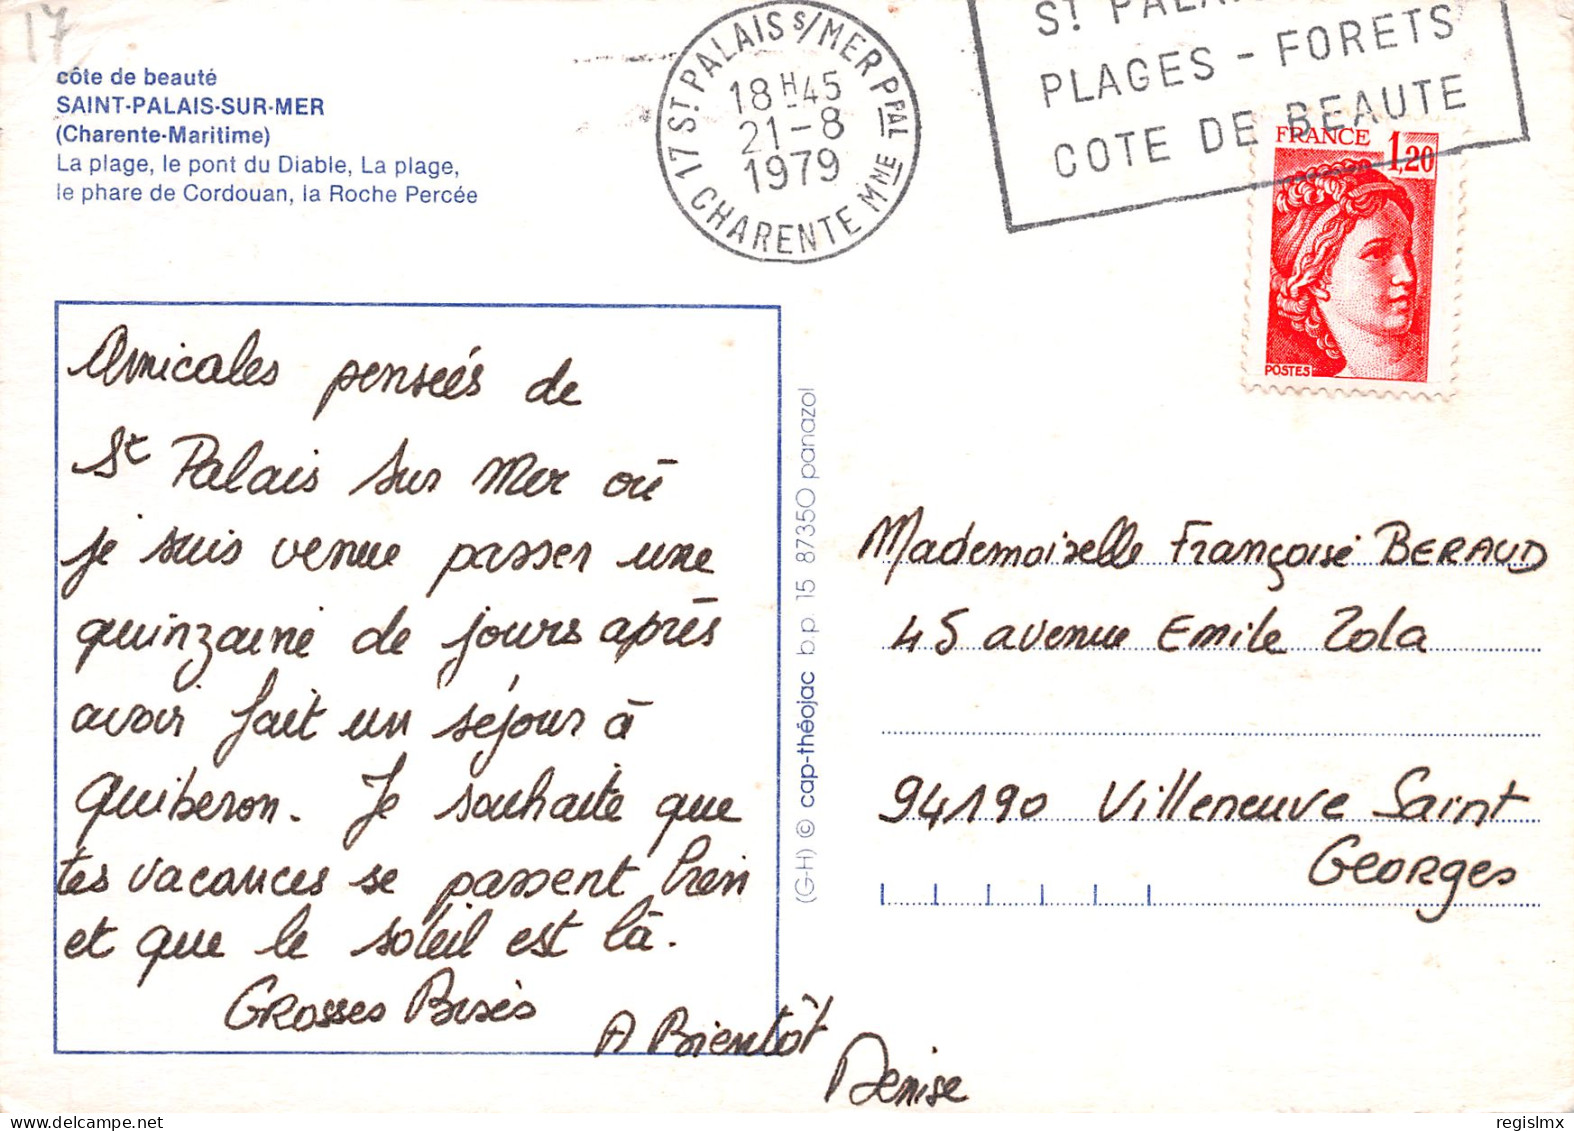 17
côte de beauté
SAINT-PALAIS-SUR-MER
(Charente-Maritime)
La plage, le pont du Diable, La plage,
le phare de Cordouan, la Roche Percée
17 ST PALAIS S/MER PPAL
18H45
21-8
1979
CHARENTE MME
ST PALAI
PLAGES - FORETS
COTE DE BEAUTE
FRANCE 1,20
POSTES
Amicales pensées de
St Palais sur Mer où
je suis venue passer une
quinzaine de jours après
avoir fait un séjour à
Quiberon. Je souhaite que
tes vacances se passent bien
et que le soleil est là.
Grosses Bises
A Bientôt
Denise
(G-H) © cap-théojac b.p. 15 87350 panazol
Mademoiselle Françoise BERAUD
45 avenue Emile Zola
94190 Villeneuve Saint
Georges
regislmx